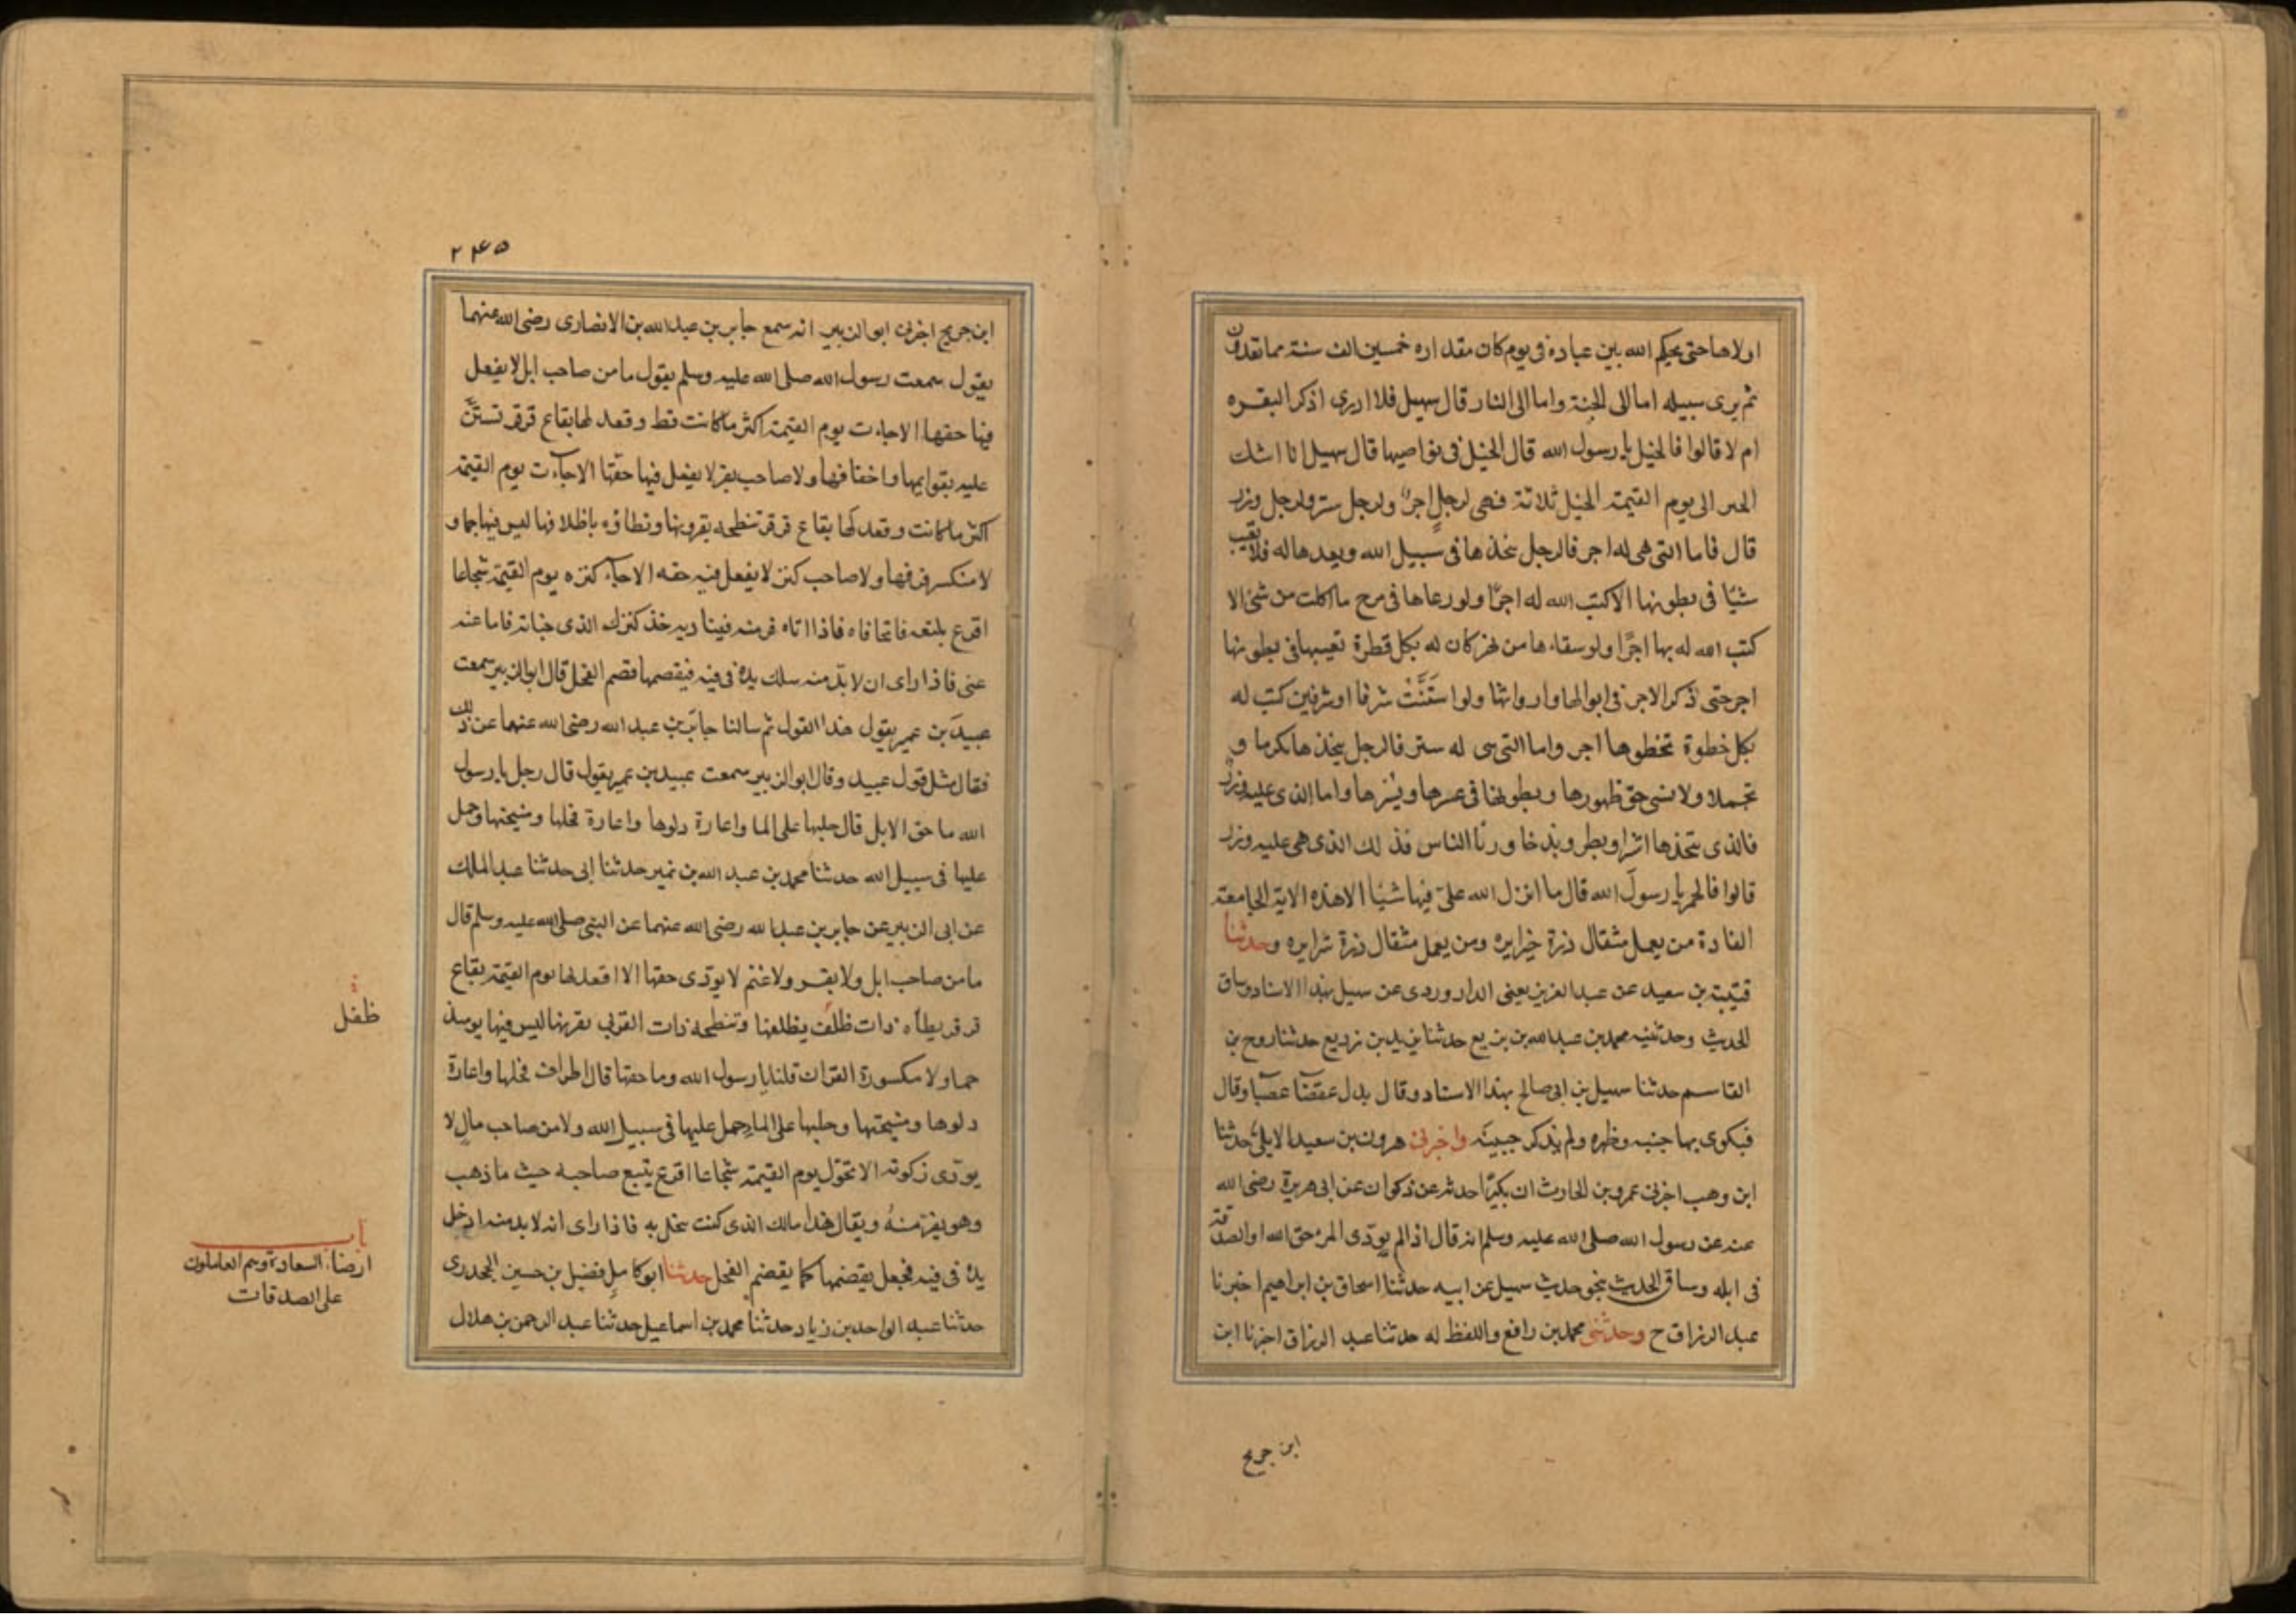 اولاها حتى يحكم الله بين عباده فى يوم كان مقداره خمسين الف سنة مما تعدون
ثم يرى سبيله اما الى الجنة واما الى النار قال سهيل فلا ادرى اذكر البقره
ام لا قالوا فالخيل يا رسول الله قال الخيل فى نواصيها قال سهيل انا اشك
الخير الى يوم القيمة الخيل ثلاثة فهى لرجل اجر ولرجل ستر ولرجل وزر
قال فاما التى هى له اجر فالرجل يتخذها فى سبيل الله ويعدها له فلا تغيب
شيئا فى بطونها الا كتب الله له اجرا ولو رعاها فى مرج ما اكلت من شئ الا
كتب الله له بها اجرا ولو سقاءها من نهر كان له بكل قطرة تغيبها فى بطونها
اجر حتى ذكر الاجر فى ابوالها واروائها ولو استنت شرفا او شرفين كتب له
بكل خطوة تخطوها اجر واما التى هى له ستر فالرجل يتخذها تكرما و
تجملا ولا ينسى حق ظهورها وبطونها فى عسرها ويسرها واما الذى عليه وزر
فالذى يتخذها اشرا وبطرا وبذخا ورئا الناس فذلك الذى هى عليه وزر
قالوا فالحمر يا رسول الله قال ما انزل الله على فيها شيئا الا هذه الاية الجامعة
الفاذة من يعمل مثقال ذرة خيرا يره ومن يعمل مثقال ذرة شرا يره وحدثنا
قتيبة بن سعيد عن عبد العزيز يعنى الدراوردى عن سهيل بهذا الاسناد وساق
الحديث وحدثنيه محمد بن عبد الله بن بزيع حدثنا يزيد بن زريع حدثنا روح بن
القاسم حدثنا سهيل بن ابى صالح بهذا الاسناد وقال بدل عقصا عضبا وقال
فيكوى بها جنبه وظهره ولم يذكر جبينه واخبرنى هرون بن سعيد الايلى حدثنا
ابن وهب اخبرنى عمرو بن الحارث ان بكيرا حدثه عن ذكوان عن ابى هريرة رضى الله
عنه عن رسول الله صلى الله عليه وسلم انه قال اذا لم يودى المرء حق الله او الصدقة
فى ابله وساق الحديث بنحو حديث سهيل عن ابيه حدثنا اسحاق بن ابراهيم اخبرنا
عبد الرزاق ح وحدثنى محمد بن رافع واللفظ له حدثنا عبد الرزاق اخبرنا ابن
ابن جريج
٢٤٥
ابن جريج اخبرنى ابو الزبير انه سمع جابر بن عبد الله بن الانصارى رضى الله عنهما
يقول سمعت رسول الله صلى الله عليه وسلم يقول ما من صاحب ابل لا يفعل
فيها حقها الا جاءت يوم القيمة اكثر ما كانت قط وقعد لها بقاع قرقر تستن
عليه بقوايمها واخفافها ولا صاحب بقر لا يفعل فيها حقها الا جآءت يوم القيمة
اكثر ما كانت وقعد لها بقاع قرقر تنطحه بقرونها وتطاؤه باظلافها ليس فيها جما و
لا منكسر قرنها ولا صاحب كنز لا يفعل فيه حقه الا جآء كنزه يوم القيمة شجاعا
اقرع يتبعه فاتحا فاه فاذا اتاه فر منه فيناديه خذ كنزك الذى خبأته فاما عنه
غنى فاذا راى ان لا بد منه سلك يده فى فيه فيقضمها قضم الفحل قال ابو الزبير سمعت
عبيد بن عمير يقول هذا القول ثم سالنا جابر بن عبد الله رضى الله عنهما عن ذلك
فقال مثل قول عبيد وقال ابو الزبير سمعت عبيد بن عمير يقول قال رجل يا رسول
الله ما حق الابل قال حلبها على الما واعارة دلوها واعارة فحلها ومنيحتها وحمل
عليها فى سبيل الله حدثنا محمد بن عبد الله بن نمير حدثنا ابى حدثنا عبد الملك
عن ابى الزبير عن جابر بن عبد الله رضى الله عنهما عن النبى صلى الله عليه وسلم قال
ما من صاحب ابل ولا بقر ولا غنم لا يودى حقها الا اقعد لها يوم القيمة بقاع
قرقر يطأه ذات ظلف بظلفها وتنطحه ذات القرن بقرنها ليس فيها يومئذ
جما ولا مكسورة القران قلنا يا رسول الله وما حقها قال اطراق فحلها واعارة
دلوها ومنيحتها وحلبها على الماء وحمل عليها فى سبيل الله ولا من صاحب مال لا
يودى زكوته الا تحول يوم القيمة شجاعا اقرع يتبع صاحبه حيث ما ذهب
وهو يفر منه ويقال هذا مالك الذى كنت تبخل به فاذا راى انه لا بد منه ادخل
يده فى فيه فجعل يقضمها كما يقضم الفحل حدثنا ابو كامل فضيل بن حسين الجحدرى
حدثنا عبد الواحد بن زياد حدثنا محمد بن اسماعيل حدثنا عبد الرحمن بن هلال
ظفل
باب
ارضاء السعادة وهم العاملون
على الصدقات